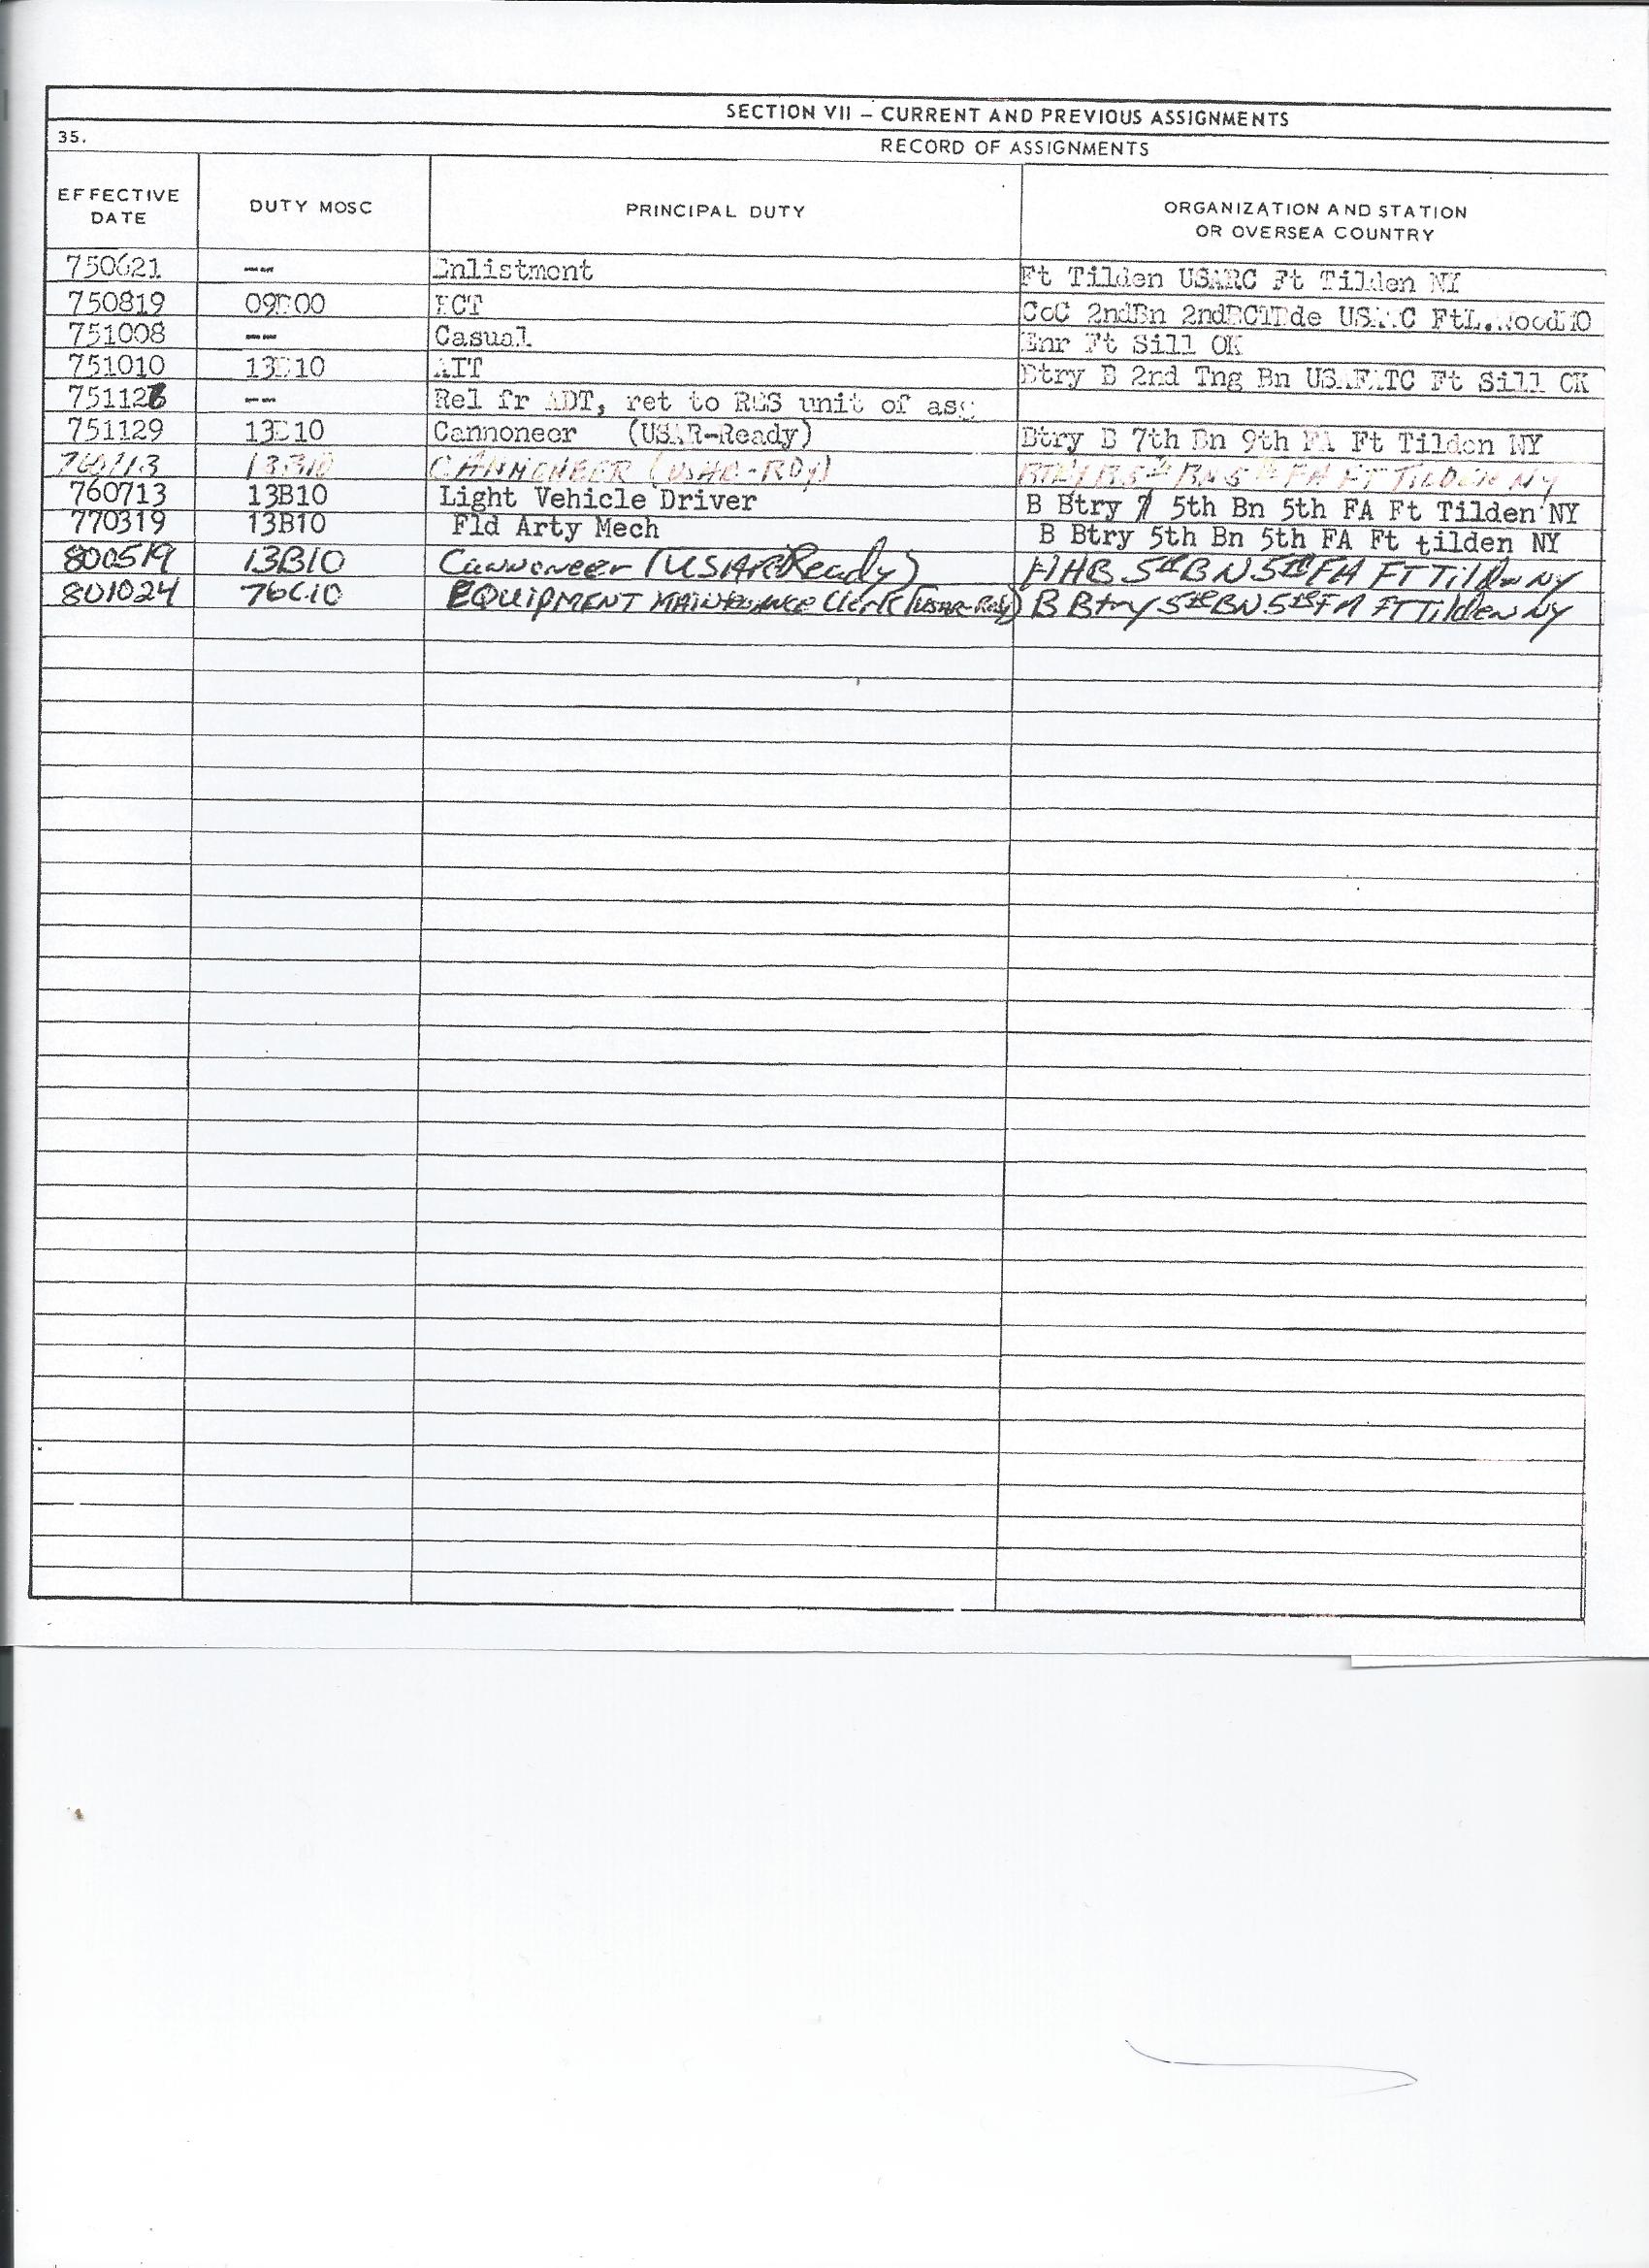 SECTION VII – CURRENT AND PREVIOUS ASSIGNMENTS
35. RECORD OF ASSIGNMENTS
EFFECTIVE DATE DUTY MOSC PRINCIPAL DUTY ORGANIZATION AND STATION OR OVERSEA COUNTRY
750621 --- Enlistment Ft Tilden USARC Ft Tilden NY
750819 09B00 BCT CoC 2ndBn 2ndBCTBde USATC FtL.WoodMO
751008 --- Casual Enr Ft Sill OK
751010 13B10 AIT Btry B 2nd Tng Bn USAFATC Ft Sill OK
751128 --- Rel fr ADT, ret to RES unit of asg
751129 13B10 Cannoneer (USAR-Ready) Btry B 7th Bn 9th FA Ft Tilden NY
760713 13B10 CANNONEER (USAR-RDY) BTRY B 5th BN 5th FA FT TILDEN NY
760713 13B10 Light Vehicle Driver B Btry 5th Bn 5th FA Ft Tilden NY
770319 13B10 Fld Arty Mech B Btry 5th Bn 5th FA Ft tilden NY
800519 13B10 Cannoneer (USAR Ready) HHB 5th BN 5th FA FT Tilden NY
801024 76C10 EQUIPMENT MAINTENANCE Clerk (USAR-Rdy) B Btry 5th BN 5th FA FT Tilden NY